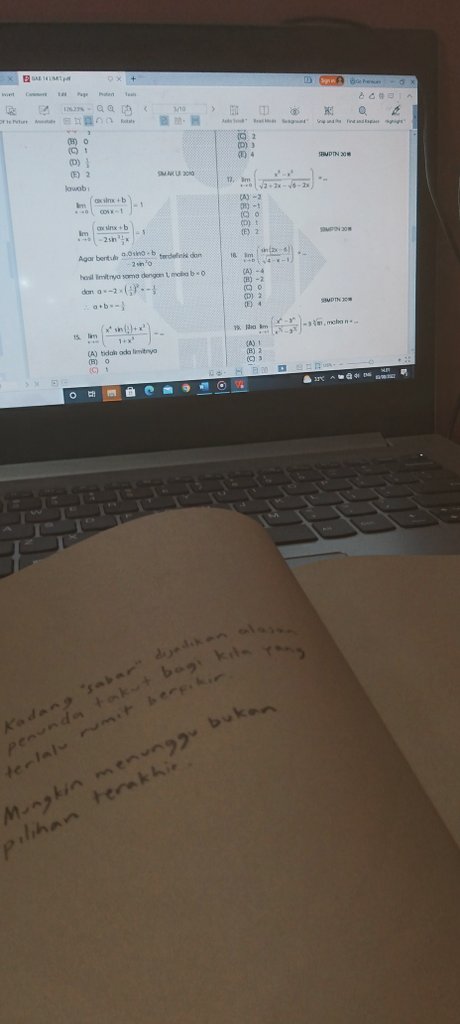 BAB 14 LIMIT.pdf
Sign in
Go Premium
Insert Comment Edit Page Protect Tools
126,29%
3/10
Annotate
Rotate
Auto Scroll
Read Mode
Background
Snip and Pin
Find and Replace
Highlight
(B) 0
(C) 1
(D) 1/2
(E) 2
SIMAK UI 2010
Jawab:
lim x→0 (ax sin x + b / cos x − 1) = 1
lim x→0 (ax sin x + b / −2 sin² ½x) = 1
Agar bentuk a.0 sin 0 + b / −2 sin² 0 terdefinisi dan
hasil limitnya sama dengan 1, maka b = 0
15. lim
(A) tidak ada limitnya
(B) 0
(C) 1
(C) 2
(D) 3
(E) 4
SBMPTN 2018
17. lim
(A) −2
(B) −1
(C) 0
(D) 1
(E) 2
SBMPTN 2018
18. lim (sin(2x − 6) / √4 − x − 1) = ...
(A) −4
(B) −2
(C) 0
(D) 2
(E) 4
SBMPTN 2018
19. Jika lim
, maka n = ...
(A) 1
(B) 2
(C) 3
33°C
ENG
14.01
Kadang "sabar" dijadikan alasan
penunda takut bagi kita yang
terlalu rumit berpikir.
Mungkin menunggu bukan
pilihan terakhir.